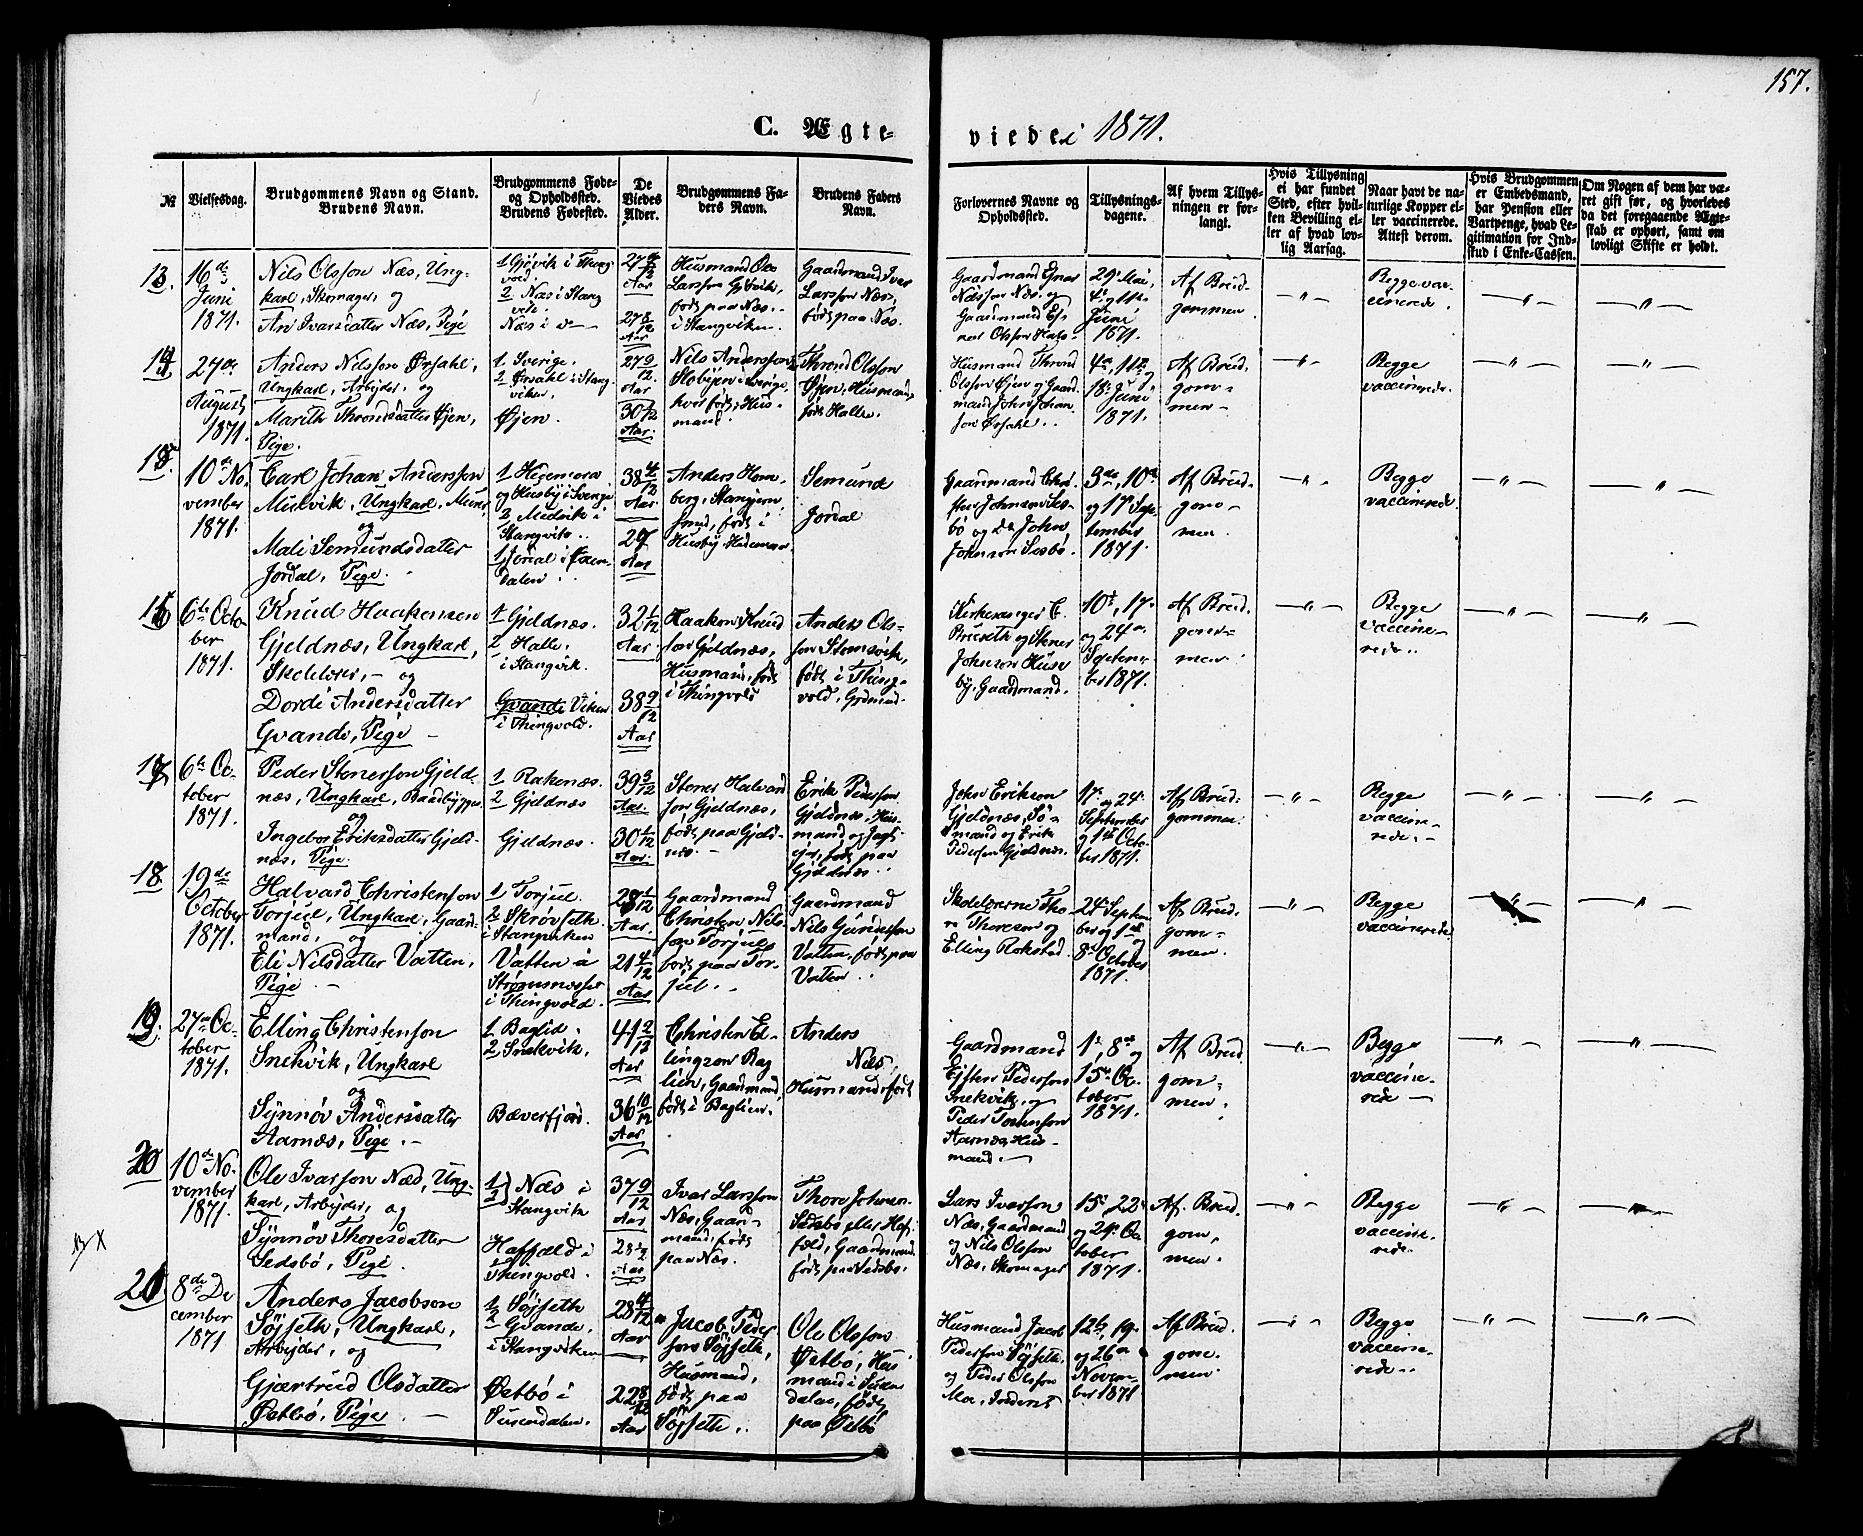 157.
C. Ægteviede i 1871.
№
Vielsesdag.
Brudgommens Navn og Stand.
Brudens Navn.
Brudgommens Føde-
og Opholdssted.
Brudens Fødested.
De
Viedes
Alder.
Brudgommens Fa-
ders Navn.
Brudens Faders
Navn.
Forlovernes Navne og
Opholdssted.
Tillysnings-
dagene.
Af hvem Tillys-
ningen er for-
langt.
Hvis Tillysning
ei har fundet
Sted, efter hvil-
ken Bevilling el-
ler af hvad lov-
lig Aarsag.
Naar havt de na-
turlige Kopper el-
ler vaccinerede.
Attest derom.
Hvis Brudgommen
er Embedsmand,
har Pension eller
Vartpenge, hvad Le-
gitimation for Ind-
skud i Enke-Cassen.
Om Nogen af dem har væ-
ret gift før, og hvorledes
da det foregaaende Ægte-
skab er ophørt, samt om
lovligt Skifte er holdt.
13.
16de
Juni
1871.
Nils Olsson Næs, Ung-
karl, Skomager, og
An Ivarsdatter Næs, Pige
1 Gjøvik i Thing-
vold
2 Næs i Stang
vik.
Næs i do
27
Aar
27 8/12
Aar
Husmand Ole
Larsson Gjøvik,
født paa Næs
i Stangviken.
Gaardmand Ivar
Larsson Næs,
født paa Næs.
Gaardmand
Nilsson Næs, og
Gaardmand
Olsson
29 Mai,
4de og 11te
Juni
1871.
Af Brud-
gommen
Begge vac-
cinerede.
14
27de
August
1871.
Anders Nilsson Ørsahl,
Ungkarl, Arbejder, og
Marith Throndsdatter Øjen,
Pige.
1. Sverige.
2 Ørsahl i Stang-
viken.
Øjen.
27 9/12
Aar
30
Aar.
Nils Andersson
i Sverige,
hvor født, Hus-
mand.
Thrond Olsson
Øjen, Husmand,
født Halle.
Husmand Thrond
Olsson Øjen og Gaard-
mand John Johan-
son Ørsahl.
4de, 11te og
18 Juni
1871.
Af Brud-
gom-
men
Begge
vaccinerede.
15.
10de No-
vember
1871.
Carl Johan Andersson
Mulvik, Ungkarl, Murer,
og
Mali Semundsdatter
Jordal, Pige.
1 Hedemora
og Husby i Sverige
2 Mulvik i
Stangvik.
Jordal i
dalen
38 4/12
Aar
27
Aar
Anders Hom-
berg,
Smed, født i
Husby, Hedemora
Semund
Jordal
Gaardmand
Johnson
og do John
Johnson
3de, 10de
og 17 Sep-
tember
1871.
Af Brud-
gom-
men.
Begge
vaccinerede
16
6te Octo-
ber
1871.
Knud Haakensen
Gjeldnæs, Ungkarl,
Skolelærer, og
Dordi Andersdatter
Gvande, Pige
1 Gjeldnæs.
2 Halle,
i Stangvik.
Gvande Viken
i Thingvold.
32 1/12
Aar
38 9/12
Aar
Haakon Knud
son Gjeldnæs,
Husmand, født
i Thingvold
Anders Ols-
son
født i Thing-
vold, Grdmand.
Kirkesanger E.
og Stener
Johnson Huse
by, Gaardmand.
10de, 17.
og 24de
Septem-
ber 1871.
Af Brud-
gom-
men
Begge
vaccine-
rede.
17
6te Oc-
tober
1871.
Peder Stenersson Gjeld-
næs, Ungkarl, Baadbygger
og
Ingebor Eriksdatter Gjeld-
næs, Pige.
1 Rakenæs.
2 Gjeldnæs
Gjeldnæs.
39 3/12
Aar.
30
Aar.
Stener Halvard
son Gjeldnæs,
født paa Gjeld-
næs.
Erik Pederson
Gjeldnæs, Hus-
mand og
født paa
Gjeldnæs.
John Erikson
Gjeldnæs, Sø-
mand og Erik
Pederson Gjeldnæs.
17 og 24.
September
og 1ste Octo-
ber 1871.
Af Brud-
gommen
Begge
vaccine-
rede.
18.
19de
October
1871.
Halvard Christenson
Torjul, Ungkarl, Gaard-
mand, og
Eli Nilsdatter Vatten,
Pige.
1 Torjul.
2 Skrøvseth
i Stangviken
Vatten i
Strømsnæsset
i Thingvold.
28
Aar.
21 4/12
Aar
Gaardmand
Christen Nils
son Torjul,
født paa Tor-
jul.
Gaardmand
Nils Gunderson
Vatten, født paa
Vatten
Skolelærerne Tho-
re Thoreson og
Elling Rokstad.
24 Septem-
ber og 1ste og
8de October
1871.
Af Brud-
gom-
men.
Begge
vaccinerede
19.
27de Oc-
tober
1871.
Elling Christenson
Snekvik, Ungkarl
og
Synnøv Andersdatter
Aarnæs, Pige.
1 Baglid.
2 Snekvik.
Bæverfjord.
41
Aar
36 10/12
Aar
Christen El-
lingson Bag
lien, Gaardmand,
født i Baglien.
Anders
Næs,
Husmand, født
Gaardmand
Pederson
Snekvik, og
Peder
Aarnæs, Hus-
mand.
1ste, 8de og
15de Oc-
tober
1871.
Af Brud
gom-
men.
Begge
vaccine-
rede
20
10de No-
vember
1871.
Ole Ivarson Næs, Ung-
karl, Arbejder, og
Synnøv Thoresdatter
Sedsbø, Pige.
1
2
Næs i
Stangvik
i
Thingvold.
37 9/12
Aar
28
Aar
Ivar Larsson
Næs, Gaard-
mand, født
paa Næs.
Thore Johnson
Sedsbø eller
Gaardmand
født paa
Lars Ivarson
Næs, Gaardmand
og Nils Olsson
Næs, Skomager
15, 22
og 29. Oc
tober
1871.
Af Brud.
gom-
men.
Begge
vaccine-
rede.
21
8de De
cember
1871
Anders Jacobson
Søjseth, Ungkarl,
Arbejder, og
Gjærtrud Olsdatter
Østbø, Pige.
1 Søjseth
2 Gvande,
i Stangviken
Østbø i
Surendalen.
28 4/12
Aar
22 8/12
Aar
Jacob Peder
son Søjseth,
Husmand,
født paa
Søjseth.
Ole Olsson
Østbø, Hus
mand i Suren
dalen, født
paa Østbø
Husmand Jacob
Pederson Søjseth.
og Peder Olsson
Moe,
12te, 19.
og 26de
Novem-
ber 1871
Af Brud.
gom-
men
Begge
vaccine-
rede.